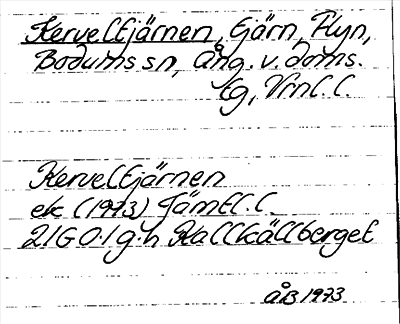 Kerveltjärnen, tjärn, Flyn,
Bodums sn, Ång. v. doms.
tg, Vrnl. l.
Kerveltjärnen
ek (1973) Jämtl. l.
21G 0-1 g-h Kallkällberget
ÅB 1973